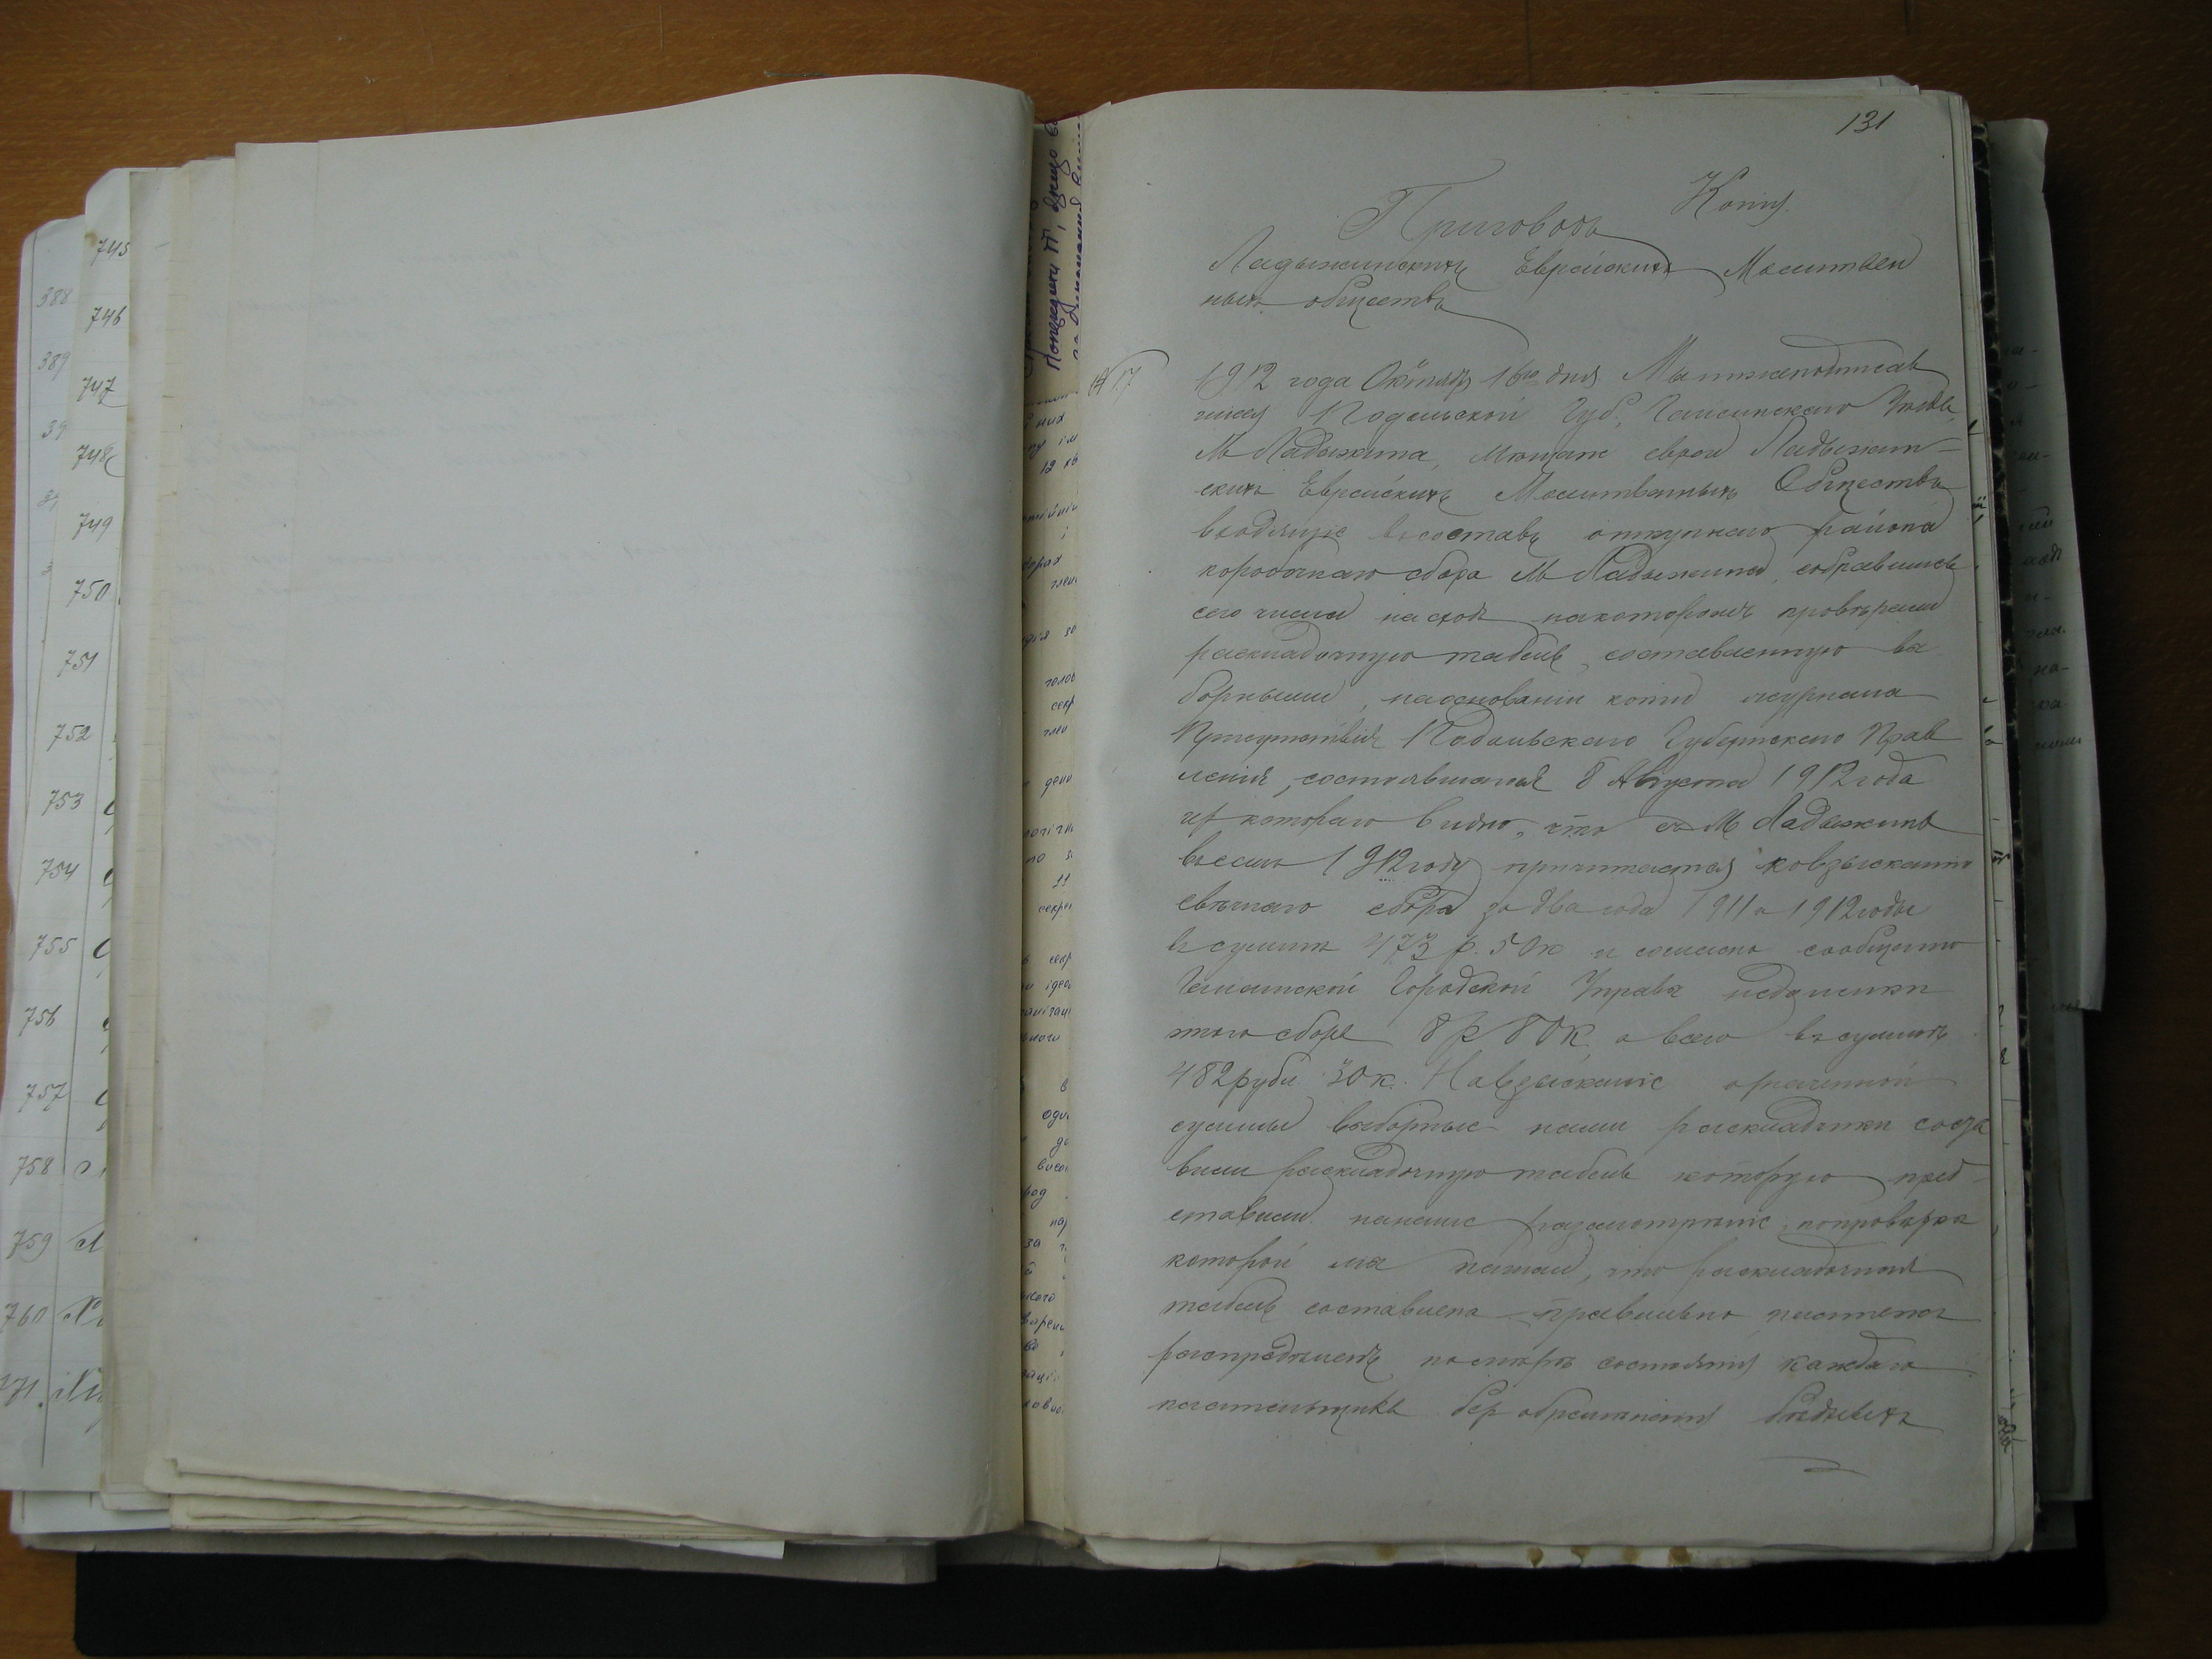 745
388
746
389
747
39
748
749
750
751
752
753
754
755
756
757
758
759
760
131
Копія
Приговоръ
Ладыжинскихъ Еврейскихъ Молитвен
ныхъ обществъ
17
1912 года Октября 16го дня Мы нижеподписав
шіеся Подольской Губ. Гайсинскаго Уѣзда,
М Ладыжина, мѣщане евреи Ладыжин-
скихъ Еврейскихъ Молитвенныхъ Обществъ
входящіе въ составъ откупнаго района
коробочнаго сбора М Ладыжина, собравшись
сего числа на сходъ на которомъ провѣряли
раскладочную табель, составленную вы
борными, на основаніи копіи журнала
Присутствія Подольскаго Губернскаго Прав
ленія, состоявшагося 8 Августа 1912 года
изъ котораго видно, что съ М Ладыжина
въ семъ 1912 году причитается ко взысканію
свѣчнаго сбора за два года 1911 и 1912 годы
въ суммѣ 473 р. 50к и согласно сообщенію
Гайсинской Городской Управы недоимки
этого сбора 8 р 80 к, а всего въ суммѣ
482 рубл 30 к. На взысканіе означенной
суммы выборные нами раскладчики соста
вили раскладочную табель которую пред-
ставили на наше разсмотрѣніе, по провѣркѣ
которой мы нашли, что раскладочная
табель составлена правильно, платежъ
распредѣленъ по мѣрѣ состоянія каждаго
плательщика безъ обремененія бѣдныхъ